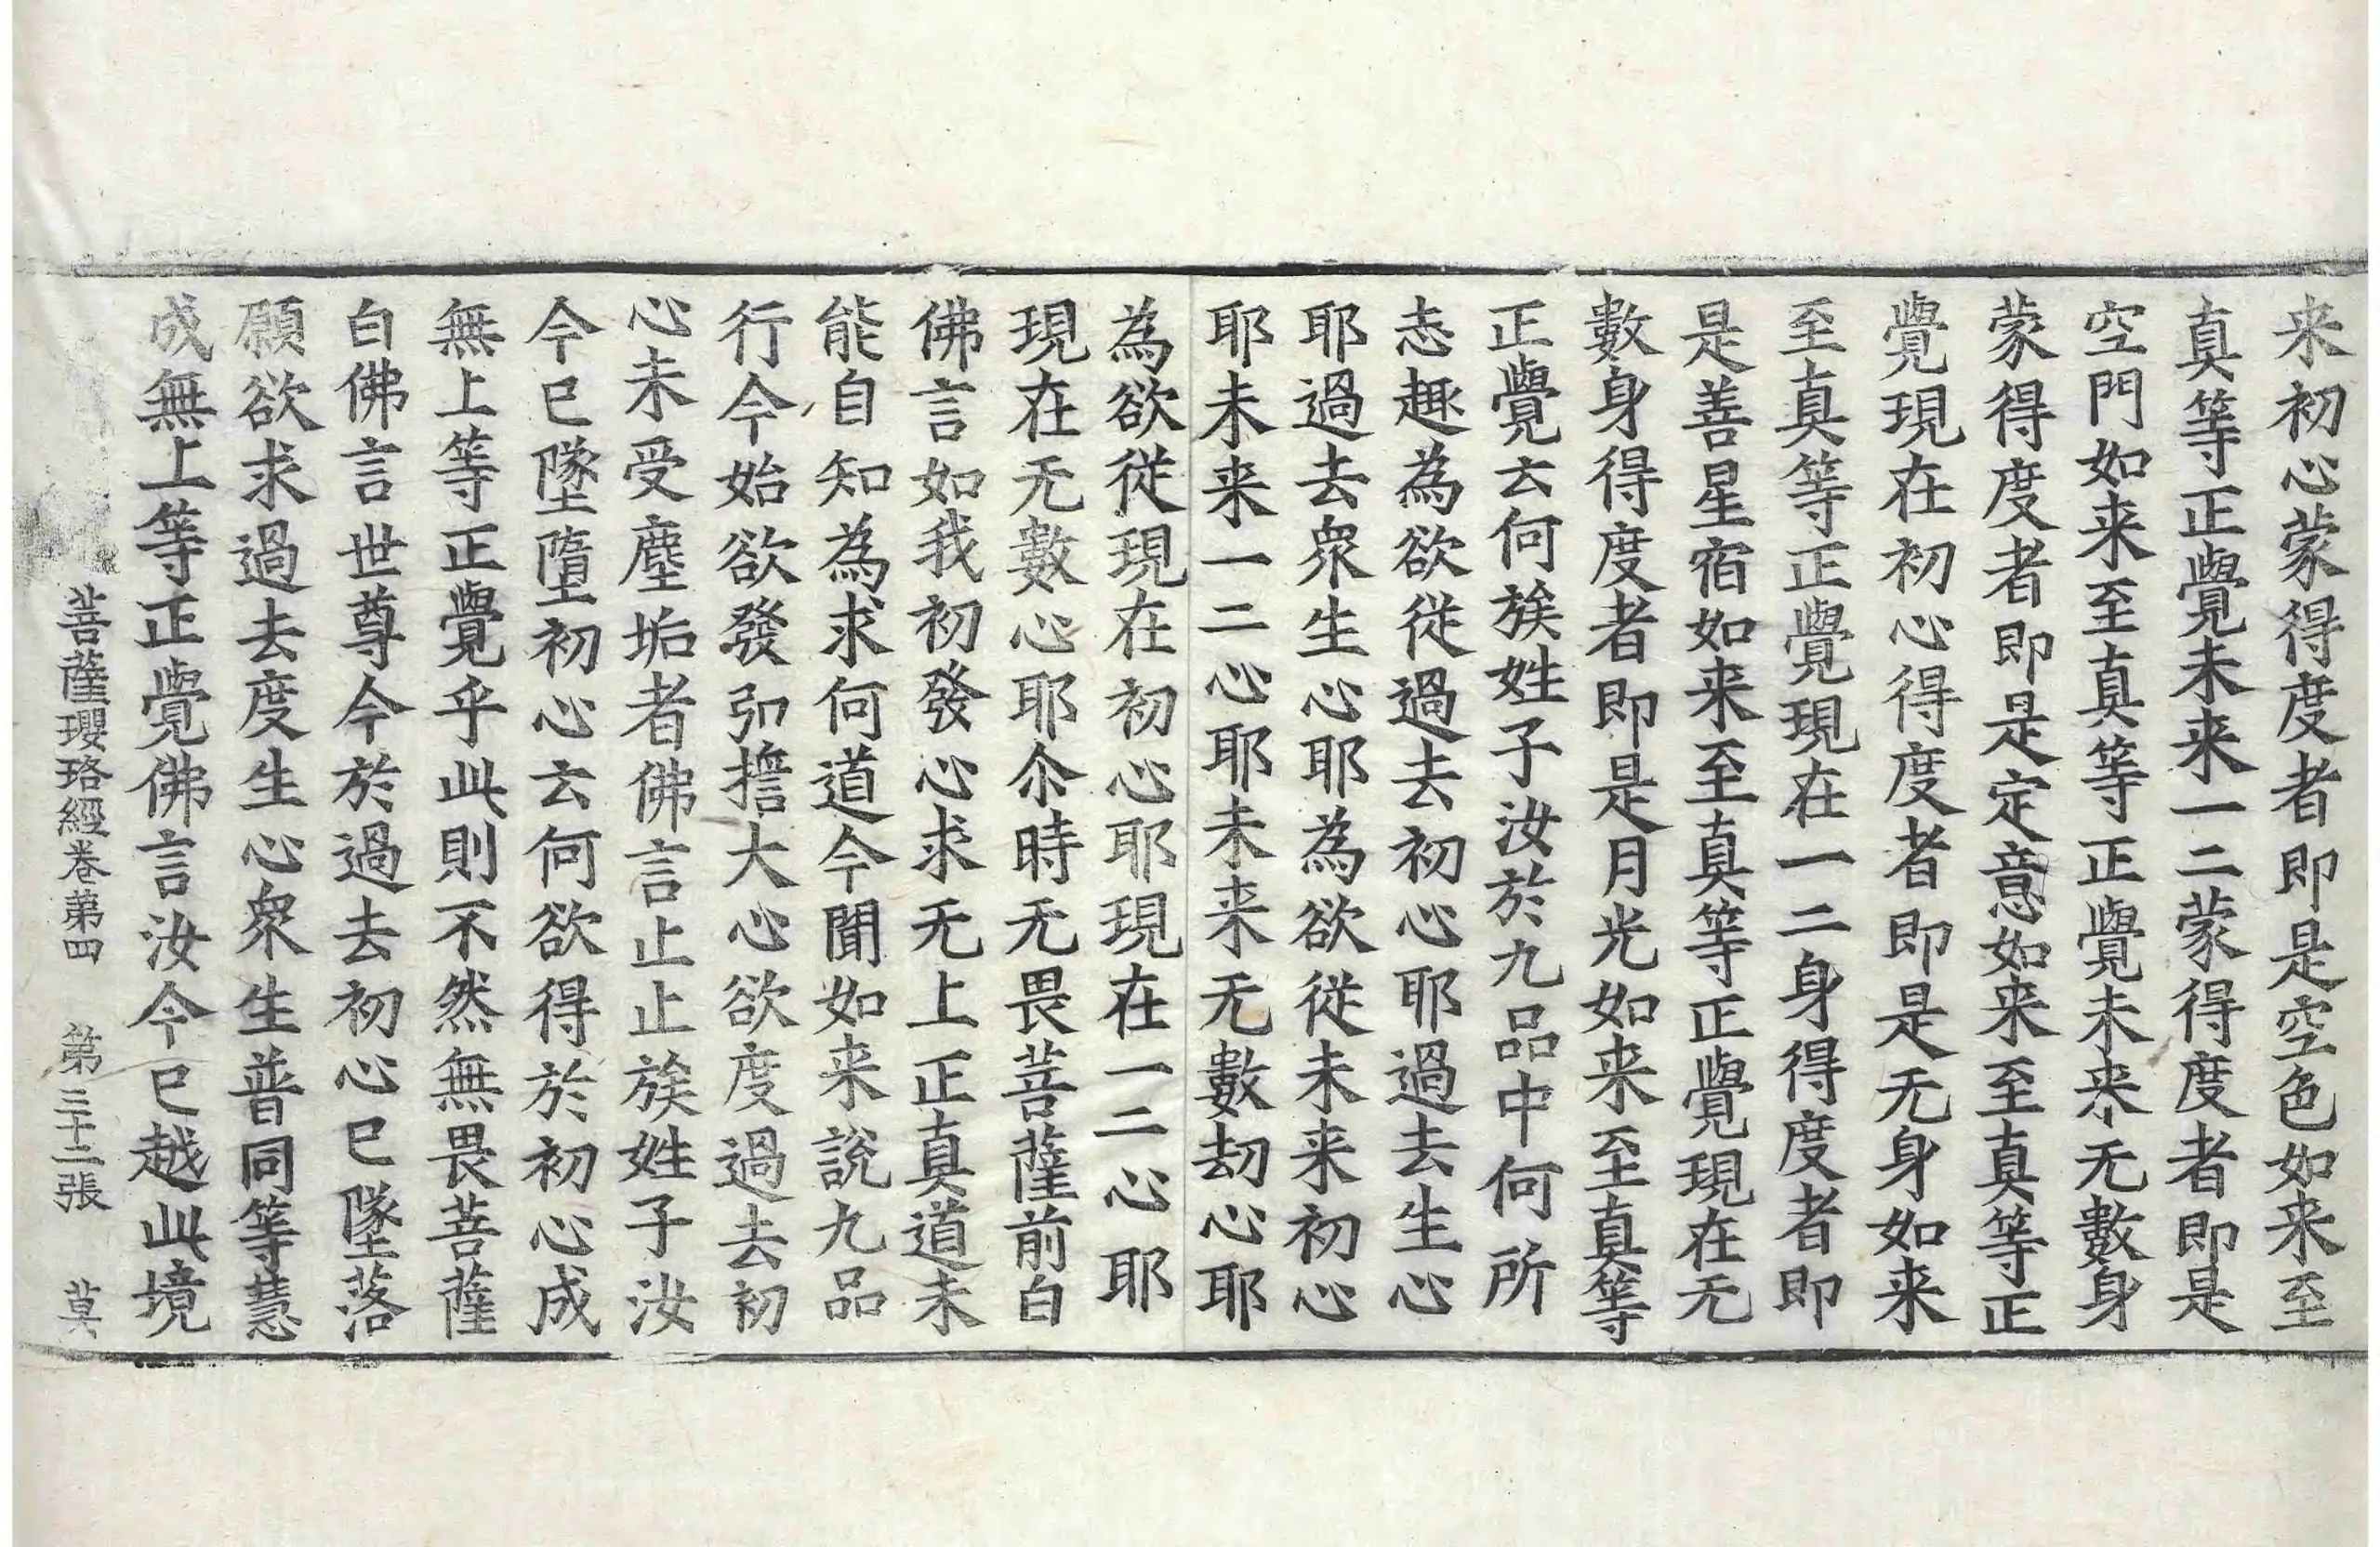 来初心蒙得度者即是空色如来至
真等正覺未来一二蒙得度者即是
空門如来至真等正覺未来无數身
蒙得度者即是定意如来至真等正
覺現在初心得度者即是无身如来
至真等正覺現在一二身得度者即
是善星宿如来至真等正覺現在无
數身得度者即是月光如来至真等
正覺云何族姓子汝於九品中何所
志趣為欲從過去初心耶過去生心
耶過去衆生心耶為欲從未来初心
耶未来一二心耶未来无數劫心耶
為欲從現在初心耶現在一二心耶
現在无數心耶尒時无畏菩薩前白
佛言如我初發心求无上正真道未
能自知為求何道今聞如来說九品
行今始欲發弘擔大心欲度過去初
心未受塵垢者佛言止止族姓子汝
今已墜墮初心云何欲得於初心成
無上等正覺乎此則不然無畏菩薩
白佛言世尊今於過去初心已墜落
願欲求過去度生心衆生普同等慧
成無上等正覺佛言汝今已越此境
菩薩瓔珞經卷第四 第三十二張 莫